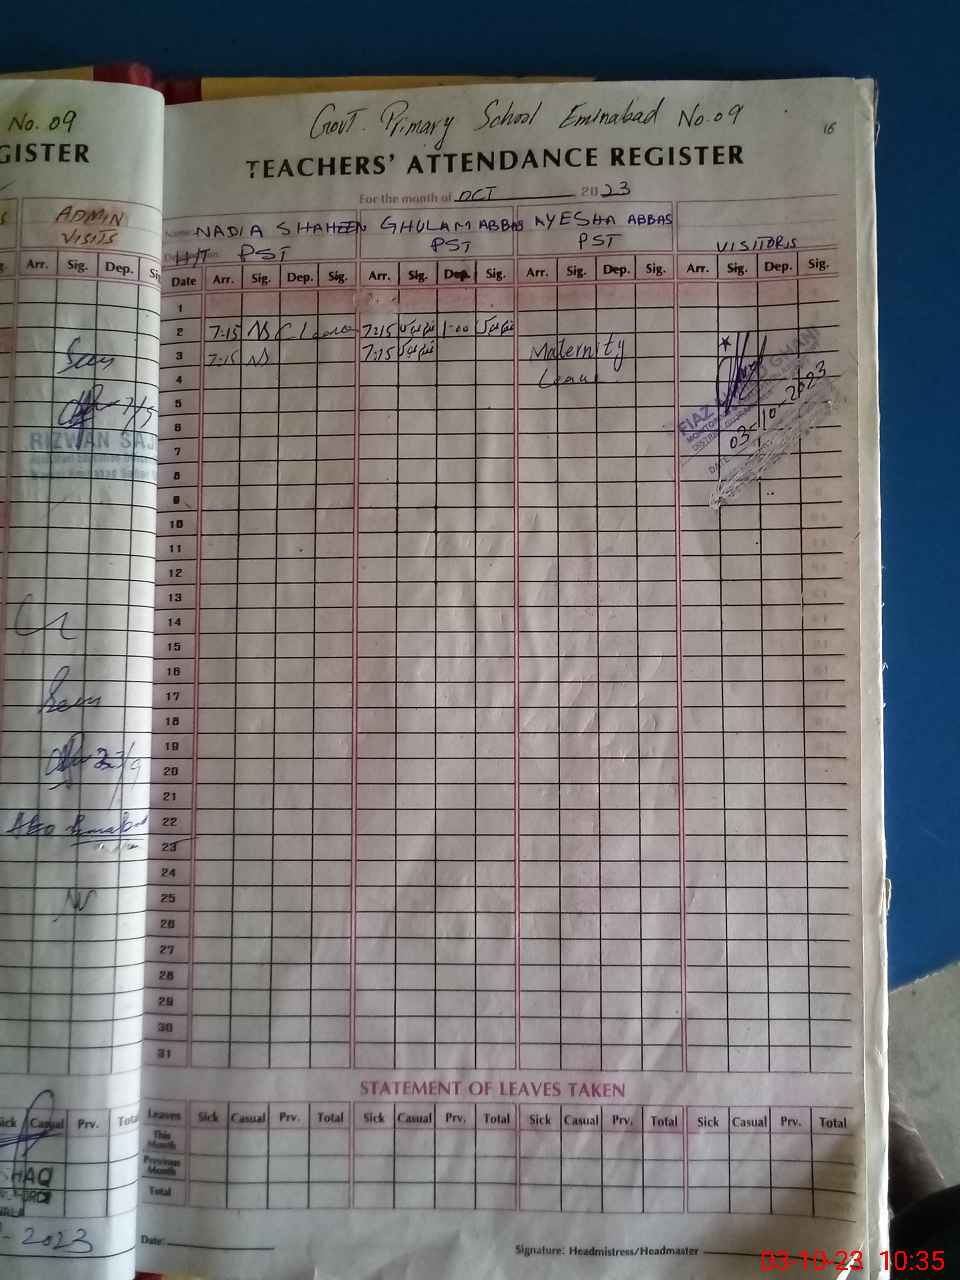 No. 09
GISTER
ADMIN
VISITS
Arr. Sig. Dep. Sig.
Seen
7/9
RIZWAN SAJ
Seen
23/9
Sick Casual Prv. Total
SHAQ
2023
Govt. Primary School Eminabad No. 09
16
TEACHERS' ATTENDANCE REGISTER
For the month of OCT 2023
Name: NADIA SHAHEEN GHULAM ABBAS AYESHA ABBAS
H/T PST PST PST VISITORS
Date Arr. Sig. Dep. Sig. Arr. Sig. Dep. Sig. Arr. Sig. Dep. Sig. Arr. Sig. Dep. Sig.
1
2 7:15 NS C Leave 7:15 1:00
3 7:15 NS 7:15 Maternity
4 Leave
5
6
7
8
9
10
11
12
13
14
15
16
17
18
19
20
21
22
23
24
25
26
27
28
29
30
31
FIAZ GHANI
DATE 03-10-2023
STATEMENT OF LEAVES TAKEN
Leaves Sick Casual Prv. Total Sick Casual Prv. Total Sick Casual Prv. Total Sick Casual Prv. Total
This Month
Previous Month
Total
Date:
Signature: Headmistress/Headmaster
03-10-23 10:35